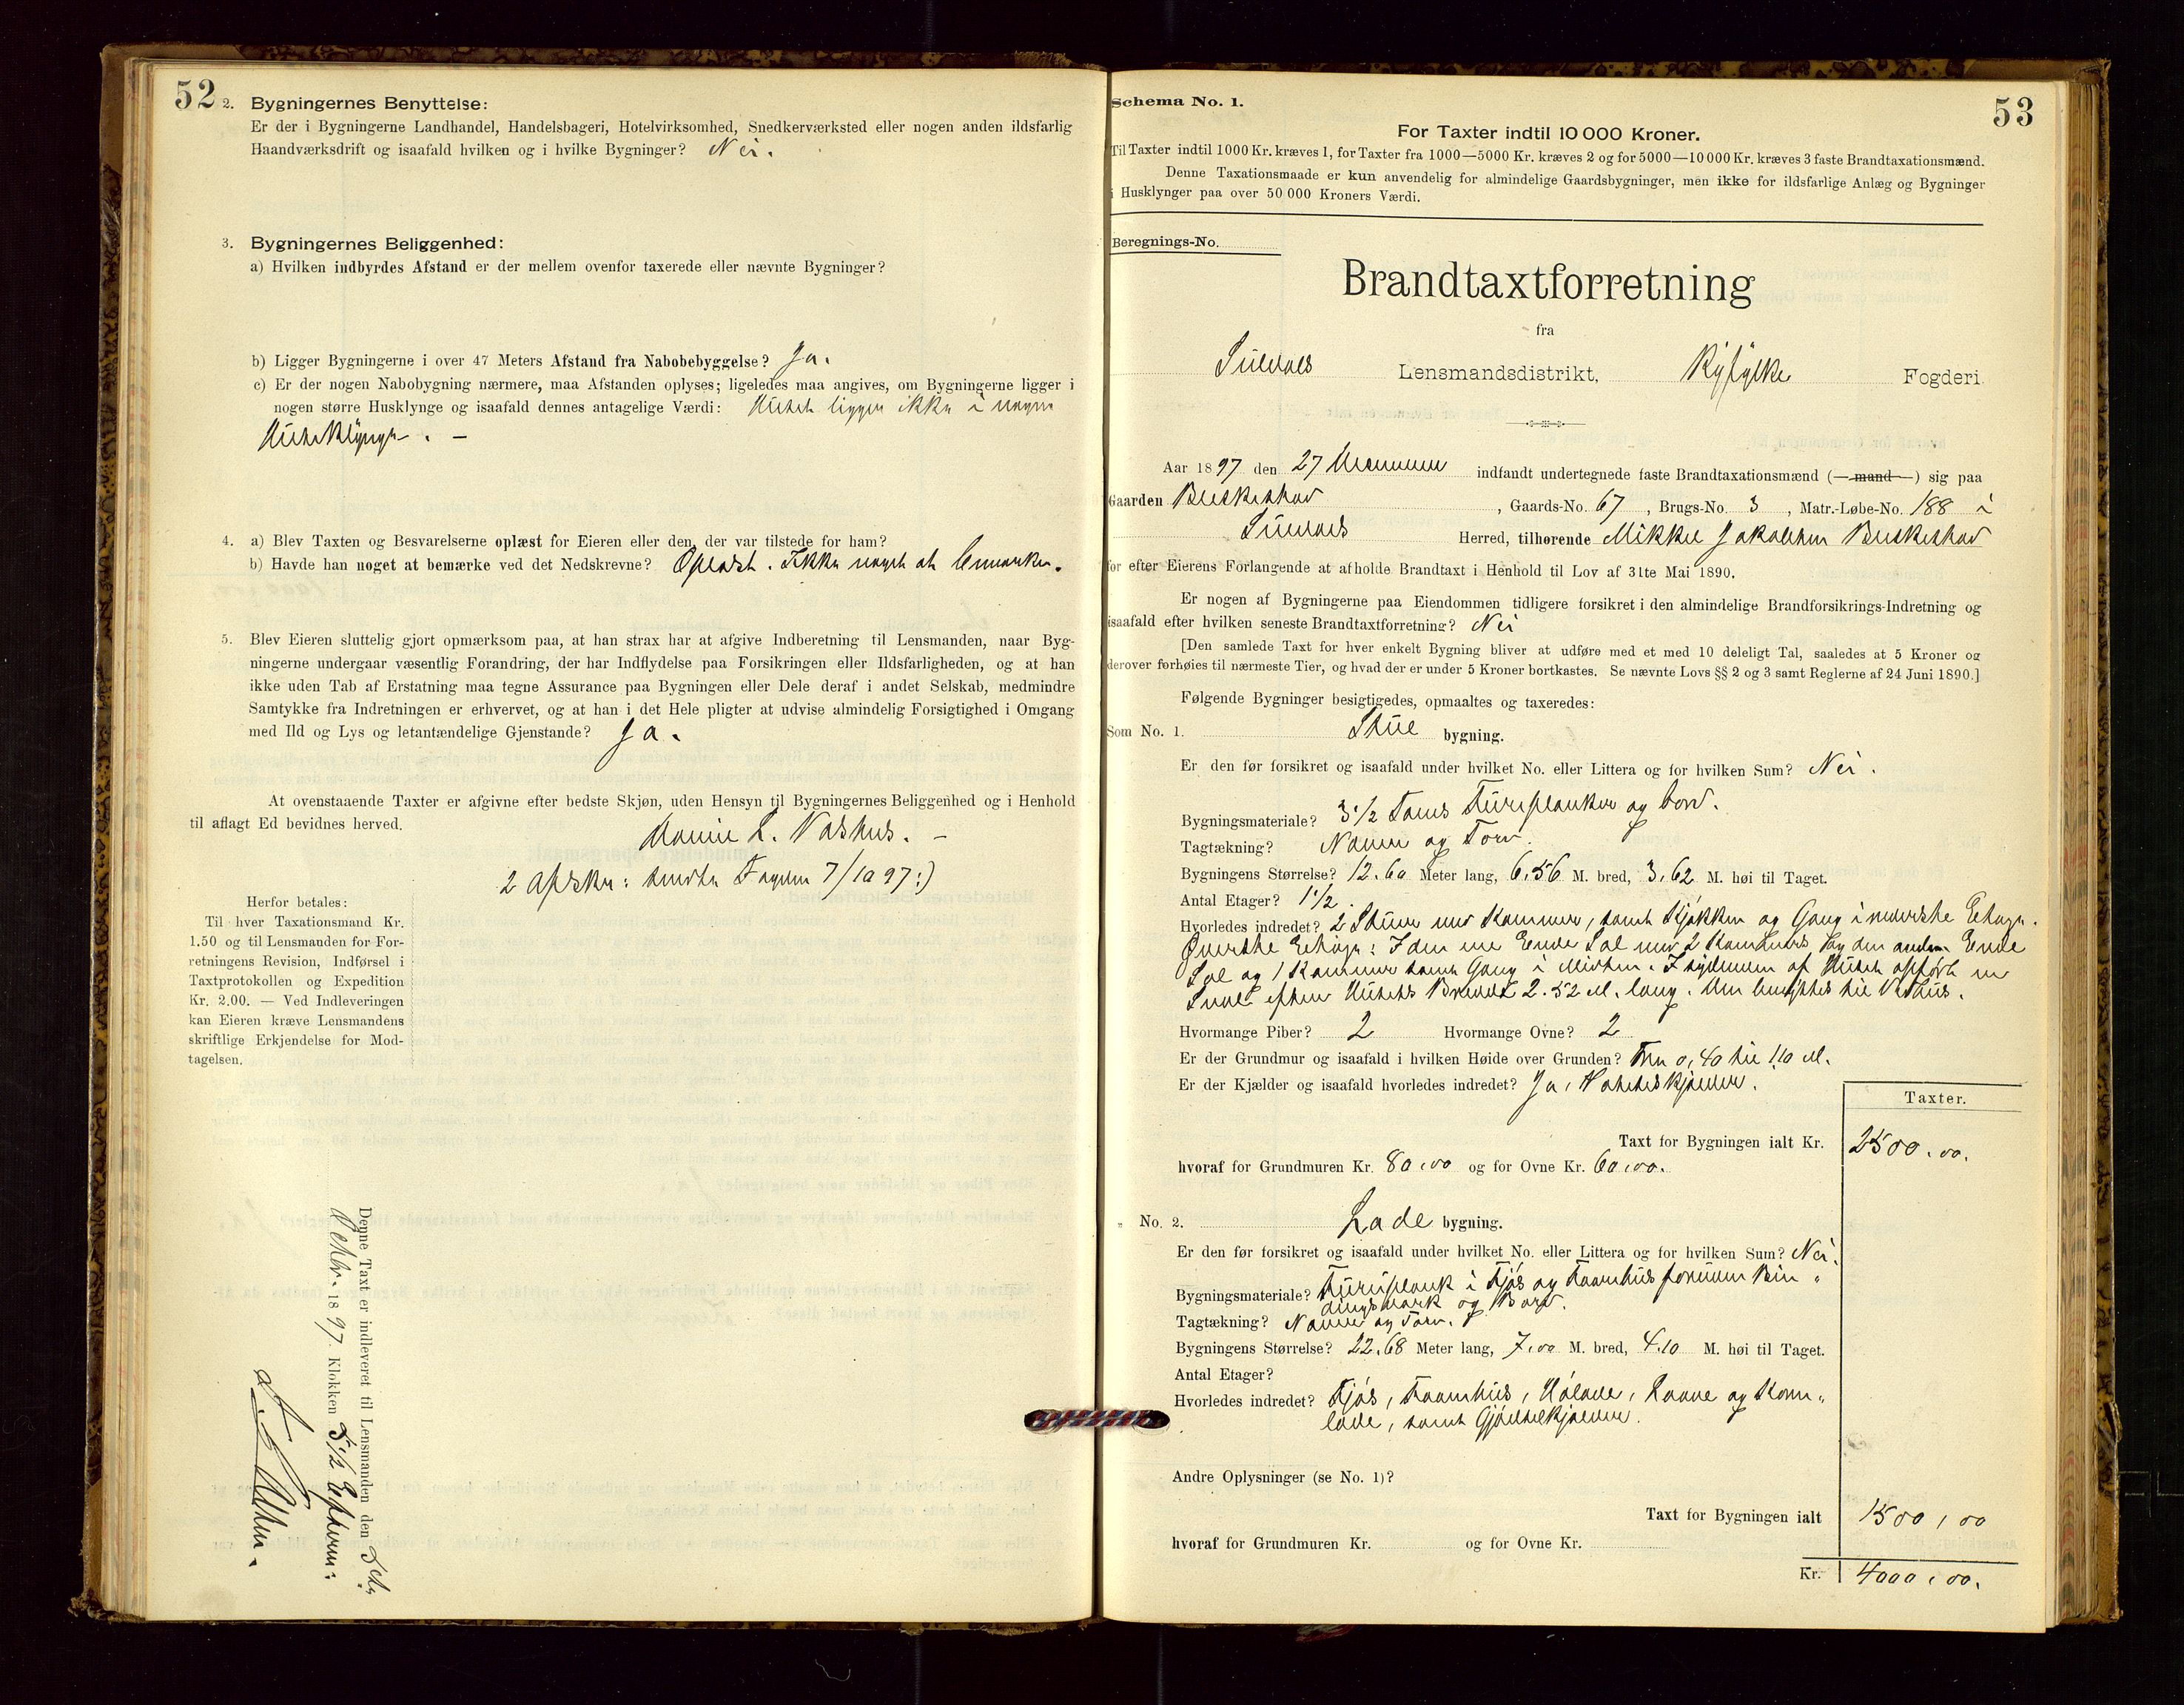 52
2. Bygningernes Benyttelse:
Er der i Bygningerne Landhandel, Handelsbageri, Hotelvirksomhed, Snedkerværksted eller nogen anden ildsfarlig
Haandværksdrift og isaafald hvilken og i hvilke Bygninger? Nei.
3. Bygningernes Beliggenhed:
a) Hvilken indbyrdes Afstand er der mellem ovenfor taxerede eller nævnte Bygninger?
b) Ligger Bygningerne i over 47 Meters Afstand fra Nabobebyggelse? Ja.
c) Er der nogen Nabobygning nærmere, maa Afstanden oplyses; ligeledes maa angives, om Bygningerne ligger i
nogen større Husklynge og isaafald dennes antagelige Værdi: Huset ligger ikke i nogen
Husklynge. —
4. a) Blev Taxten og Besvarelserne oplæst for Eieren eller den, der var tilstede for ham?
b) Havde han noget at bemærke ved det Nedskrevne? Oplæst. Ikke noget at bemærke.
5. Blev Eieren sluttelig gjort opmærksom paa, at han strax har at afgive Indberetning til Lensmanden, naar Byg-
ningerne undergaar væsentlig Forandring, der har Indflydelse paa Forsikringen eller Ildsfarligheden, og at han
ikke uden Tab af Erstatning maa tegne Assurance paa Bygningen eller Dele deraf i andet Selskab, medmindre
Samtykke fra Indretningen er erhvervet, og at han i det Hele pligter at udvise almindelig Forsigtighed i Omgang
med Ild og Lys og letantændelige Gjenstande? Ja.
At ovenstaaende Taxter er afgivne efter bedste Skjøn, uden Hensyn til Bygningernes Beliggenhed og i Henhold
til aflagt Ed bevidnes herved.
L. —
2 Afskr: sendte Fogden 7/10 97:)
Herfor betales:
Til hver Taxationsmand Kr.
1.50 og til Lensmanden for For-
retningens Revision, Indførsel i
Taxtprotokollen og Expedition
Kr. 2.00. — Ved Indleveringen
kan Eieren kræve Lensmandens
skriftlige Erkjendelse for Mod-
tagelsen.
Denne Taxt er indleveret til Lensmanden den 5te
1897. Klokken 5 1/2 Efterm:
53
Schema No. 1.
For Taxter indtil 10 000 Kroner.
Til Taxter indtil 1000 Kr. kræves 1, for Taxter fra 1000—5000 Kr. kræves 2 og for 5000—10 000 Kr. kræves 3 faste Brandtaxationsmænd.
Denne Taxationsmaade er kun anvendelig for almindelige Gaardsbygninger, men ikke for ildsfarlige Anlæg og Bygninger
i Husklynger paa over 50 000 Kroners Værdi.
Beregnings-No.
Brandtaxtforretning
fra
Suldals Lensmandsdistrikt, Ryfylke Fogderi
Aar 1897 den 27 indfandt undertegnede faste Brandtaxationsmænd (—mand—) sig paa
Gaarden , Gaards-No. 67, Brugs-No. 3, Matr.-Løbe-No. 188 i
Suldals Herred, tilhørende Mikkel Jakobsen
for efter Eierens Forlangende at afholde Brandtaxt i Henhold til Lov af 31te Mai 1890.
Er nogen af Bygningerne paa Eiendommen tidligere forsikret i den almindelige Brandforsikrings-Indretning og
isaafald efter hvilken seneste Brandtaxtforretning? Nei
[Den samlede Taxt for hver enkelt Bygning bliver at udføre med et med 10 deleligt Tal, saaledes at 5 Kroner og
derover forhøies til nærmeste Tier, og hvad der er under 5 Kroner bortkastes. Se nævnte Lovs §§ 2 og 3 samt Reglerne af 24 Juni 1890.]
Følgende Bygninger besigtigedes, opmaaltes og taxeredes:
Som No. 1. Stue bygning.
Er den før forsikret og isaafald under hvilket No. eller Littera og for hvilken Sum? Nei.
Bygningsmateriale? 3 1/2 Toms Furuplanker og bord.
Tagtækning? Næver og Torv.
Bygningens Størrelse? 12.60 Meter lang, 6,56 M. bred, 3,62 M. høi til Taget.
Antal Etager? 1 1/2.
Hvorledes indredet? 2 Stuer med Kammer, samt Kjøkken og Gang i nederste Etage.
Øverste Etage: I den ene Ende Sal med 2 Kammers og den anden Ende
Sal og 1 Kammer samt Gang i Midten. I af Huset opført en
Sval efter Husets Bredde 2.52 M. lang. Den benyttes til Vedhus.
Hvormange Piber? 2 Hvormange Ovne? 2
Er der Grundmur og isaafald i hvilken Høide over Grunden? Fra 0,40 til 1.10 M.
Er der Kjælder og isaafald hvorledes indredet? Ja,
Taxter.
Taxt for Bygningen ialt Kr. 2500.00.
hvoraf for Grundmuren Kr. 80,00 og for Ovne Kr. 60,00.
" No. 2. Lade bygning.
Er den før forsikret og isaafald under hvilket No. eller Littera og for hvilken Sum? Nei.
Bygningsmateriale? Furuplank i Fjøs og Faarehus forøvrigt Bin-
dingsværk og Bord.
Tagtækning? Næver og Torv.
Bygningens Størrelse? 22.68 Meter lang, 7,00 M. bred, 4.10 M. høi til Taget.
Antal Etager?
Hvorledes indredet? Fjøs, Faarehus, Hølade, Laave og Korn-
lade, samt Gjødselkjælder.
Andre Oplysninger (se No. 1)?
Taxt for Bygningen ialt 1500,00
hvoraf for Grundmuren Kr. og for Ovne Kr.
Kr. 4000,00.